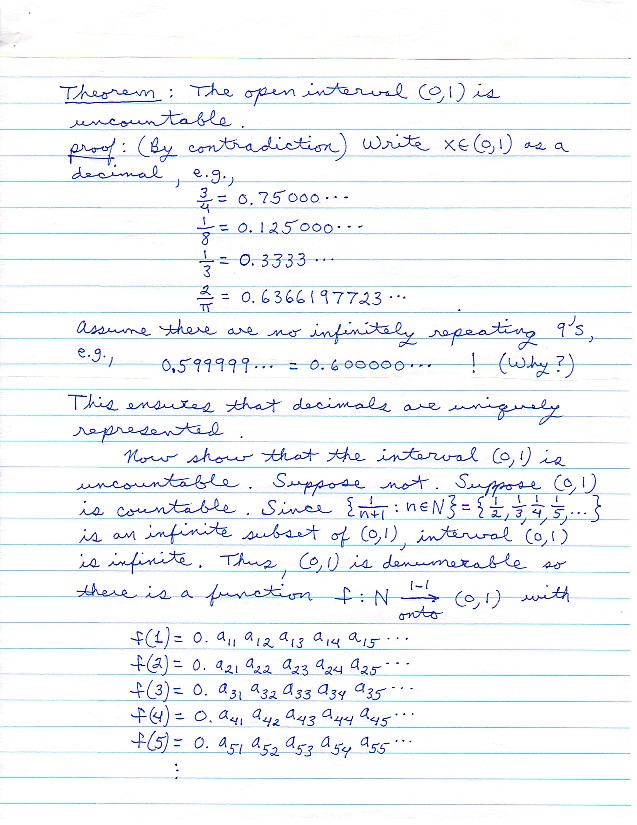 Theorem: The open interval (0,1) is
uncountable.
proof: (By contradiction) Write x∈(0,1) as a
decimal, e.g.,
3/4 = 0.75000···
1/8 = 0.125000···
1/3 = 0.3333···
2/π = 0.6366197723···
Assume there are no infinitely repeating 9's,
e.g., 0.599999··· = 0.600000··· ! (Why?)
This ensures that decimals are uniquely
represented.
Now show that the interval (0,1) is
uncountable. Suppose not. Suppose (0,1)
is countable. Since {1/(n+1) : n∈N} = {1/2, 1/3, 1/4, 1/5, ...}
is an infinite subset of (0,1), interval (0,1)
is infinite. Thus, (0,1) is denumerable so
there is a function f : N 1-1→onto (0,1) with
f(1) = 0. a₁₁ a₁₂ a₁₃ a₁₄ a₁₅ ···
f(2) = 0. a₂₁ a₂₂ a₂₃ a₂₄ a₂₅ ···
f(3) = 0. a₃₁ a₃₂ a₃₃ a₃₄ a₃₅ ···
f(4) = 0. a₄₁ a₄₂ a₄₃ a₄₄ a₄₅ ···
f(5) = 0. a₅₁ a₅₂ a₅₃ a₅₄ a₅₅ ···
⋮